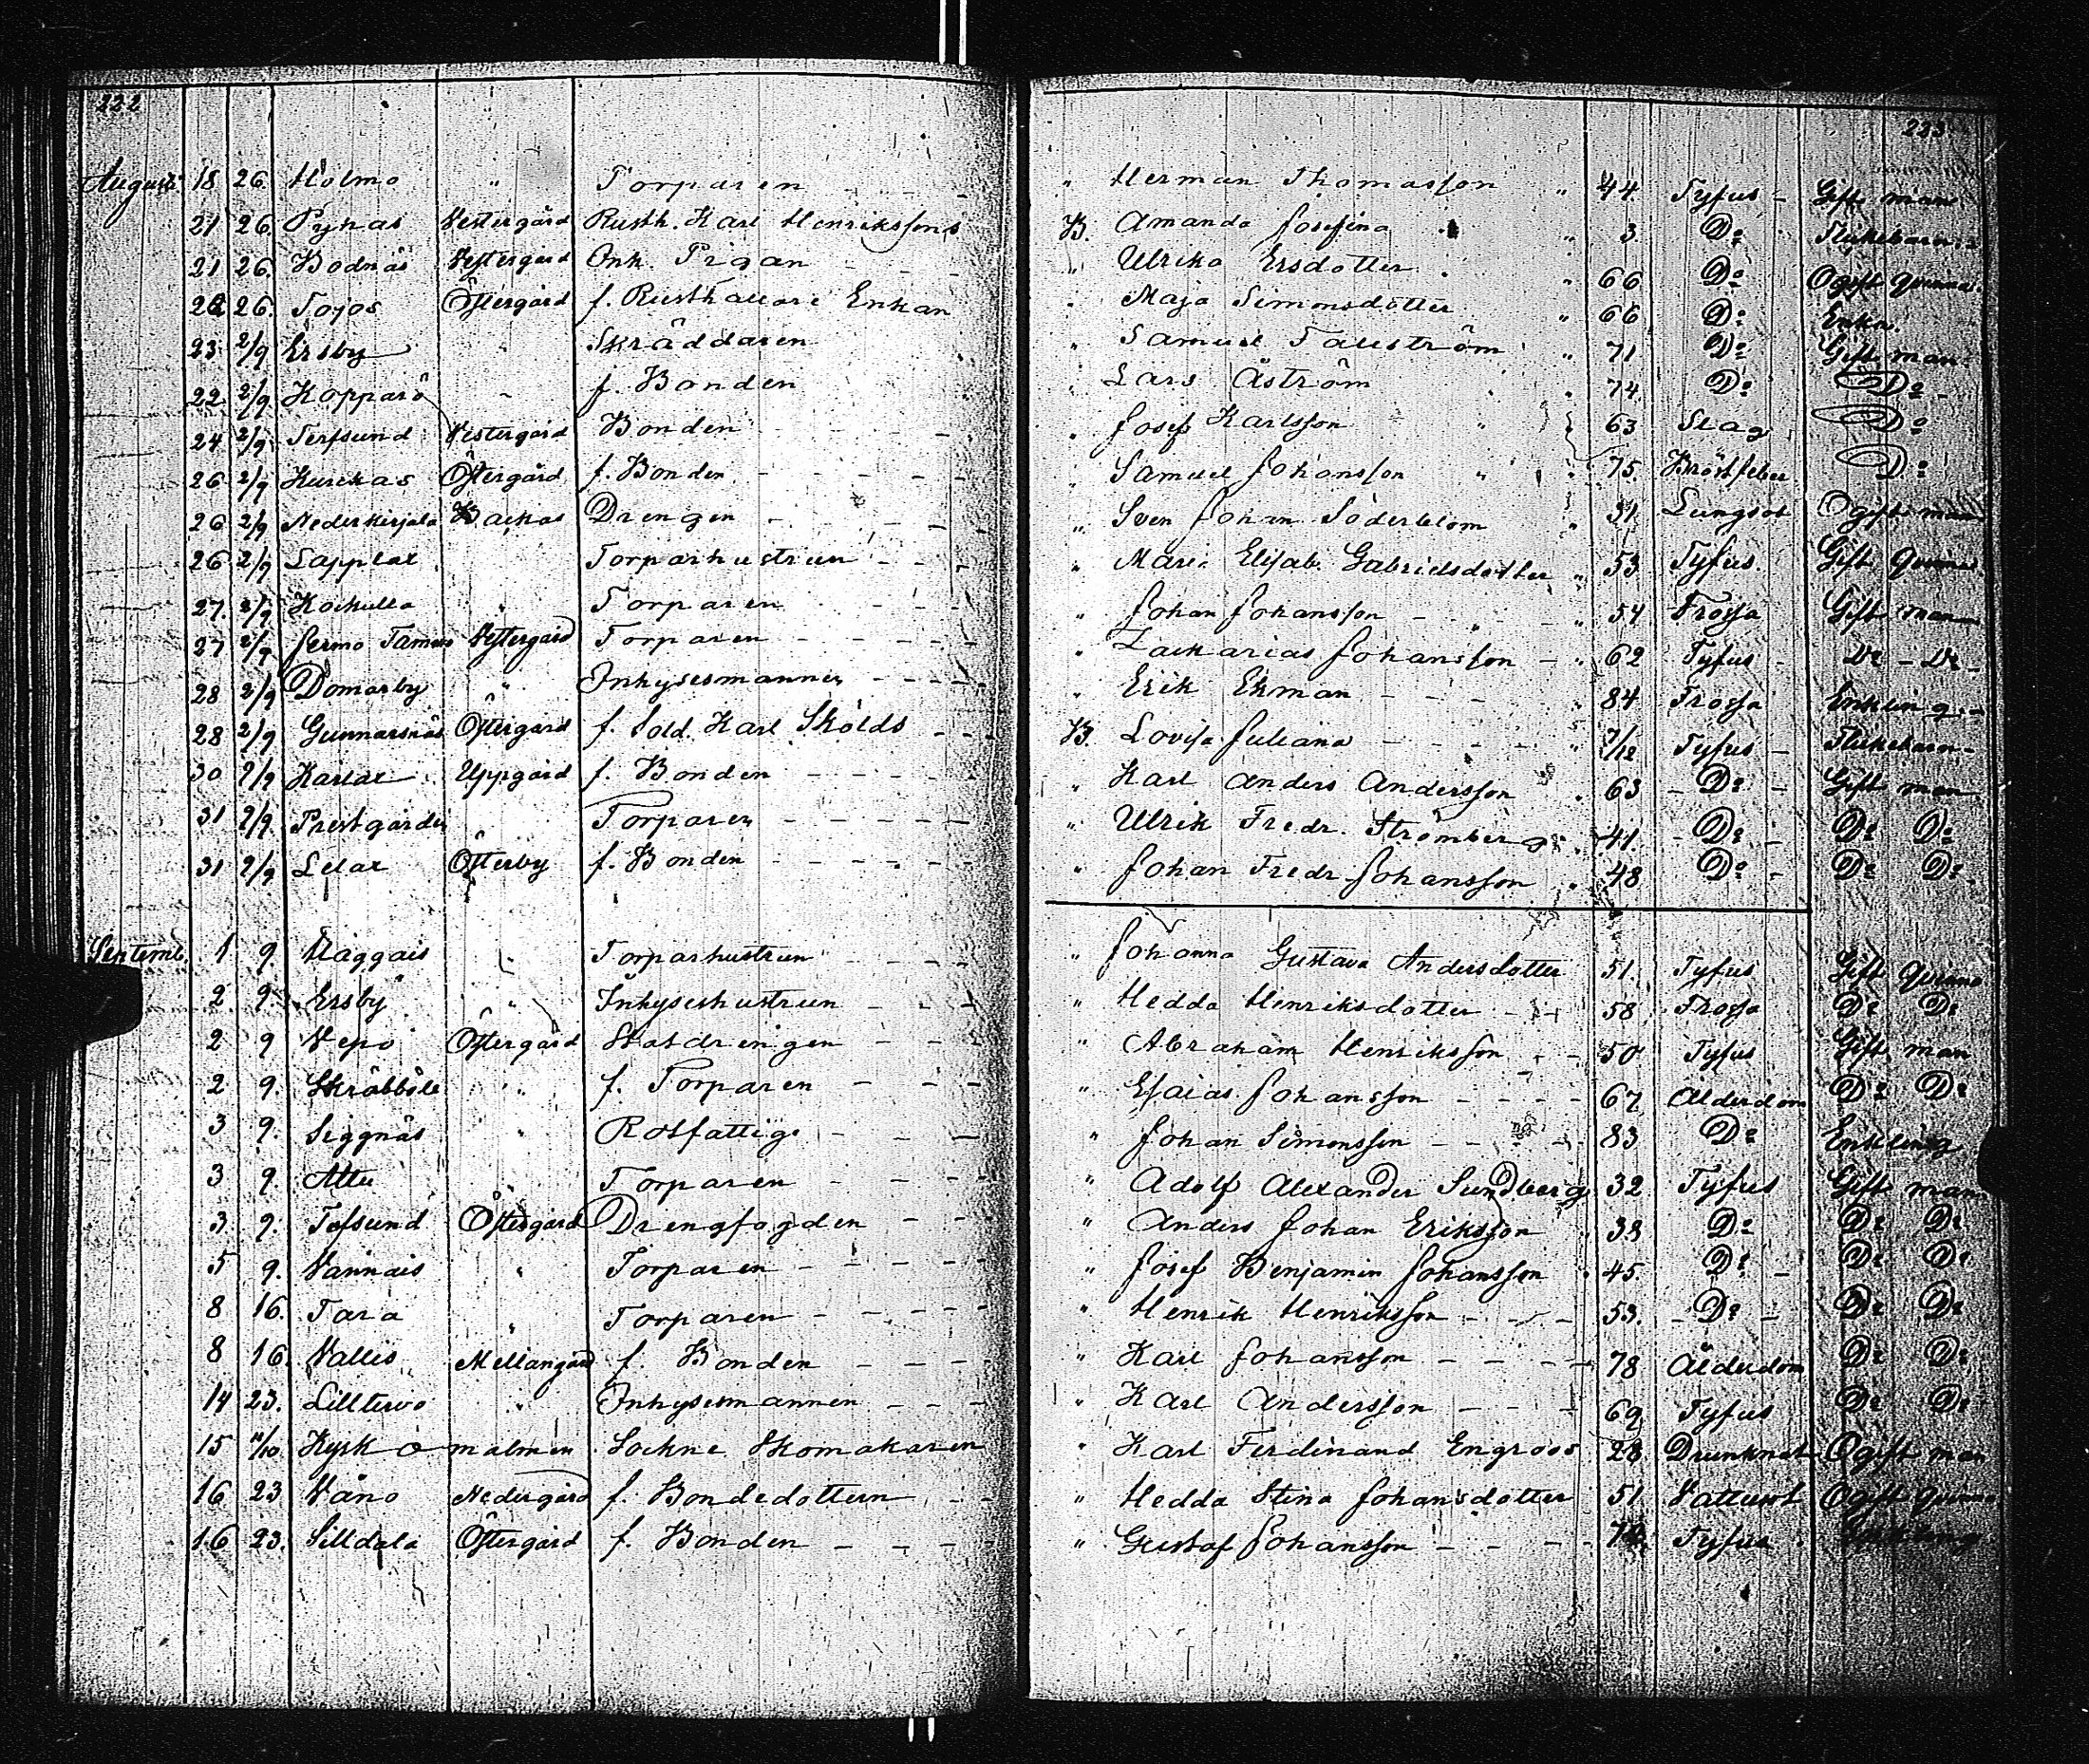 222
223
Augusti 18 26. Holmo " Torparen " Herman Thomasson " 44 Tyfus Gift man
21 26. Pyhas Vestergård Rusth. Karl Henrikssons B. Amanda Josefina " 3 Do Flickebarn
21 26. Bodnäs Vestergård Enk. Pigan " Ulrika Ersdotter " 66 Do Ogift qvinna
22 26. Tojos Östergård f. Rusthållare Enkan " Maja Simonsdotter " 66 Do Enka.
23 2/9 Ersby " Skräddaren " Samuel Fallström " 71 Do Gift man
22 2/9 Kopparö " f. Bonden " Lars Åström " 74 Do Do
24 2/9 Terfsund Vestergård Bonden " Josef Karlsson " 63 Slag Do
26 2/9 Kurckas Östergård f. Bonden " Samuel Johansson " 75 Bröstfeber Do
26 2/9 Nederkirjala Backas Drengen " Sven Johan Söderblom " 31 Lungsot Ogift man
26 2/9 Lapplax Torparhustrun " Maria Elisab. Gabrielsdotter " 53 Tyfus Gift qvinna
27. 2/9 Kockulla " Torparen " Johan Johansson " 54 Frossa Gift man
27 2/9 Jermo Vestergård Torparen " Zackarias Johansson " 62 Tyfus Do Do
28 2/9 Domarby " Inhysesmannen " Erik Ekman 84 Frossa Enkling
28 2/9 Gunnarsnäs Östergård f. Sold. Karl Skölds B. Lovisa Juliana " 7/12 Tyfus Flickebarn
30 2/9 Karlax Uppgård f. Bonden " Karl Anders Andersson " 63 Do Gift man
31 2/9 Prestgården Torparen " Ulrik Fredr. Strömberg " 41. Do Do Do
31 2/9 Lelax Österby f. Bonden " Johan Fredr. Johansson " 48 Do Do Do
Septemb. 1 9. Haggais " Torparhustrun " Johanna Gustava Andersdotter 51 Tyfus Gift qvinna
2 9. Ersby " Inhyseshustrun " Hedda Henriksdotter 58 Frossa Do Do
2 9 Vepo Östergård Statdrengen " Abraham Henriksson 50 Tyfus Gift man
2 9. Skräbböle " f. Torparen " Esaias Johansson 67 Ålderdom Do Do
3 9. Siggnäs " Rotfattig " Johan Simonsson 83 Do Enkling
3 9. Attu " Torparen " Adolf Alexander Sundberg 32 Tyfus Gift man
3 9. Tofsund Östergård Drengfogden " Anders Johan Eriksson 33 Do Do Do
5 9. Vannais " Torparen " Josef Benjamin Johansson 45. Do Do Do
8 16. Tara " Torparen " Henrik Henriksson 53. Do Do Do
8 16. Vallis Mellangård f. Bonden " Karl Johansson 78 Ålderdom Do Do
14 23. Lilltervo " Inhysesmannen " Karl Andersson 69 Tyfus Do Do
15 11/10. Kyrkomalmen Sockne Skomakaren " Karl Ferdinand Engroos 28 Drunknat Ogift man
16 23 Våno Nedergård f. Bondedottern " Hedda Stina Johansdotter 51 Vattusot Ogift qvinna
16 23. Silldala Östergård f. Bonden " Gustaf Johansson Tyfus